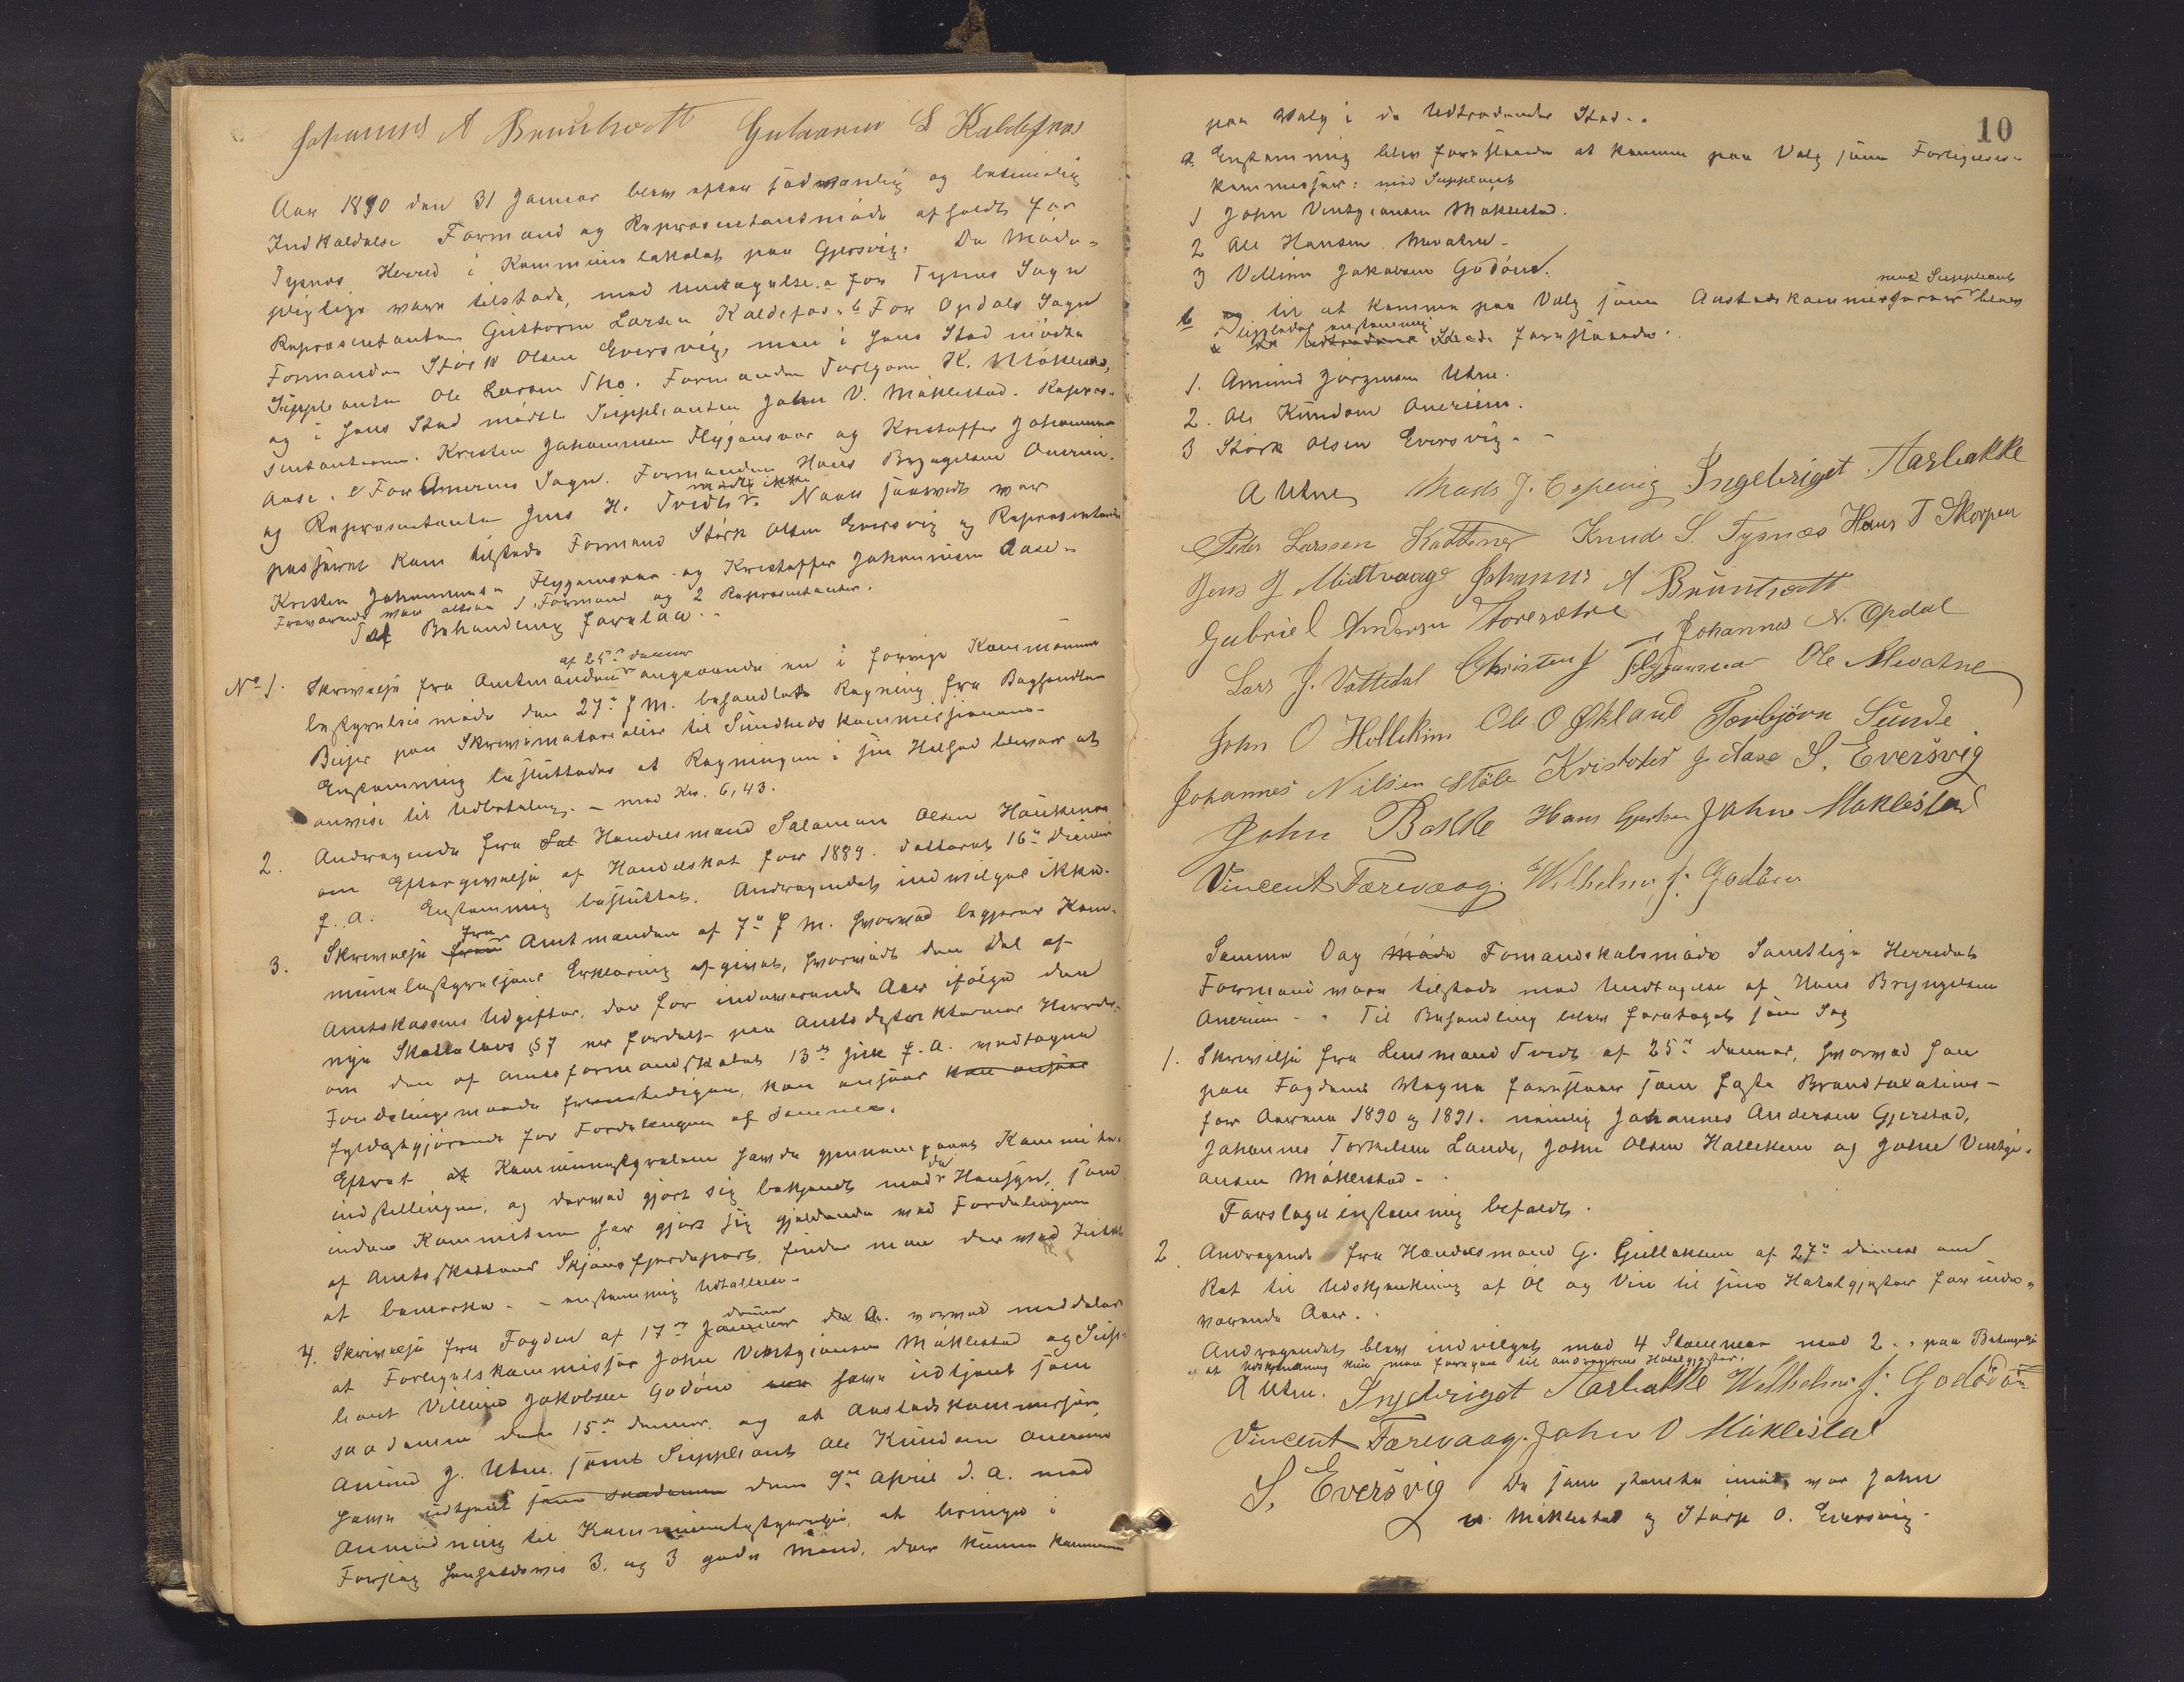 Johannes A Brüntvedt Guttormer L Kaldefoss
Aar 1890 den 31 Januar blev efter sædvanlig og betimelig
Indkaldelse Formand og Repræsentantmøde afholdt for
Tysnæs Herred i Kommunelokalet paa Gjersvig. De Møde-
pligtige vare tilstede, med Undtagelse. a For Tysnes Sogn
Repræsentanten Guttorm Larsen Kaldefos. b For Opdals Sogn
Formanden Størk Olsen Eversvig, men i hans Sted mødte
Suppleanten Ole Larsen Tho. Formanden Torbjørn K. Møklestad,
og i hans Sted mødte Suppleanten John V. Møklestad. Repræ-
sentanterne Kristen Johannessen Flygansvær og Kristoffer Johannessen
Aase. c For Onerems Sogn. Formanden Hans Bryngelsen Onereim.
og Repræsentanten Jens H. Tvedt mødte ikke. Naar saavidt var
passeret kom tilstede Formand Størk Olsen Eversvig og Repræsentanten
Kristen Johannessen Flygansvær og Kristoffer Johannesen Aase.
Fraværende var altsaa 1 Formand og 2 Repræsentanter.
Til Behandling forelaa.
No 1. Skrivelse fra Amtmanden af 25de dennes angaaende en i forrige Kommune
bestyrelsesmøde den 27de f M. behandlede Regning fra Boghandler
Beyer paa Skrivematerialier til Sundhedskommissionen.
Enstemmig besluttedes at Regningen i sin Helhed bliver at
anvise til Udbetaling. – med Kr. 6,43.
2. Andragende fra Handelsmand Salamon Olsen Haukenes
om Eftergivelse af Handelskat for 1889. dateret 16de Decemr
f. A. Enstemmig besluttet. Andragendet indvilges ikke.
3. Skrivelse fra Amtmanden af 7de f M. hvorved begjæres Kom-
munebestyrelsens Erklæring afgivet, hvorvidt den Del af
Amtskassens Udgifter, der for indeværende Aar ifølge den
nye Skattelovs § 7 er fordelt paa Amtsdistrikternes Herreder,
om den af Amtsformandskabet 13de Juli f. A. vedtagne
Fordelingsmaade fremdeles, kan ansees
fyldestgjørende for Fordelingen af samme.
Efter at Kommunestyrelsen havde gjennemgaaet Kommite-
indstillingen, og derved gjort sig bekjendt med de Hensyn, som
inden Kommiteen har gjort sig gjældende ved Fordelingen
af Amtsskattens Skjønsfjerdepart, finder man derved Intet
at bemærke. – enstemmig Udtallelse.
4. Skrivelse fra Fogden af 17de dennes d. A. vorved meddeles
at Forligelskommissær John Vintzjansen Møklestad og Sup-
leant Villum Jakobsen Godøen have udtjent som
saadanne den 15de dennes, og at Anstedskommissær
Amund J. Utne, samt Suppleant Ole Knudsen Onereim
have udtjent som saadanne den 9de April d. A. med
Anmodning til Kommunebestyrelsen, at bringe i
Forslag henholdsvis 3. og 3 gode Mænd, der kunne komme
10
paa Valg i de Udtrædendes Sted.
a Enstemmig blev foreslaaede at komme paa Valg som Forligelses-
kommissær: med Suppleant
1 John Vintzjansen Møklestad.
2 Ole Hansen Mevatne.
3 Villum Jakobsen Godøen.
b og til at komme paa Valg som Anstedskommissærer med Suppleant blev
ligeledes enstemmig foreslaaede.
1. Amund Jørgensen Utne.
2. Ole Knudsen Onereim.
3 Størk Olsen Eversvig.
A Utne Mads J. Espevig Ingebriget Aarbakke
Peder Larssen Kattenes Knud S. Tysnæs Hans T Skorpen
Jens J Midtvaage Johannes A Brüntvedt
Gabriel Andersen Storesætre Johannes N. Opdal
Lars J. Vattedal Christen J Flygansvær Ole Mevatne
John O Hollekim Ole O Økland Torbjörn Sunde
Johannes Nilsen Stöle Kristofer J Aase S. Eversvig
John Bakke Hans Gjertsen John Møklestad
Vincent Færevaag. Wilhelm J. Godöen
Samme Dag Fomandskabsmøde Samtlige Herredets
Formænd vare tilstede med Undtagelse af Hans Bryngelsen
Onereim. Til Behandling blev foretaget som Sag
1. Skrivelse fra Lensmand Tvedt af 25de dennes, hvorved han
paa Fogdens Vegne foreslaaer som faste Brandtaxations-
for Aarene 1890 og 1891. nemlig Johannes Andersen Gjerstad,
Johannes Torkelsen Lande, John Olsen Hallekem og John Vintzj-
ansen Møklestad.
Forslaget enstemmig bifaldt.
2. Andragende fra Handelsmand G. Gullaksen af 27de dennes om
Ret til Udskjænkning af Øl og Vin til sine Hotelgjæster for inde-
værende Aar.
Andragendet blev indvilget med 4 Stemmer mod 2. paa Betingelse
af at Udskjænkning kun maa foregaa til Andragerens Hotelgjæster.
A Utne. Ingebriget Aarbakke Wilhelm J. Godöen
Vincent Færevaag. John V Møklestad
S. Eversvig De som stemte imod var John
V. Møklestad og Størk O. Eversvig.